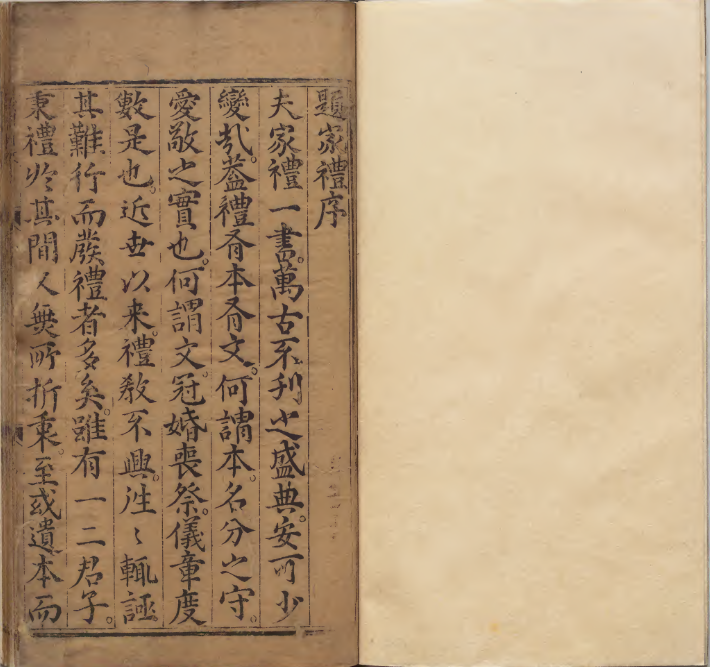 題家禮序
夫家禮一書。萬古不刋之盛典。安可少
變㢤。蓋禮有本有文。何謂本。名分之守。
愛敬之實也。何謂文。冠婚喪祭。儀章度
數是也。近世以来。禮教不興。徃〻輒諉。
其難行而廢禮者多矣。雖有一二君子。
秉禮扵其間又無所折衷。至或遺本而